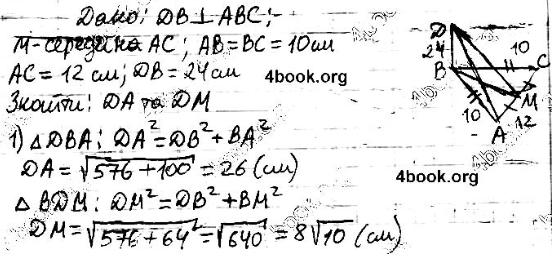 Дано: DB⊥ABC;
M-середина AC; AB=BC=10см
AC=12см; DB=24см
4book.org
Знайти: DA та DM
1) △DBA: DA²=DB²+BA²
DA=√576+100=26(см)
△BDM: DM²=DB²+BM²
DM=√576+64=√640=8√10(см)
D
24
10
B
C
M
10
A
12
4book.org